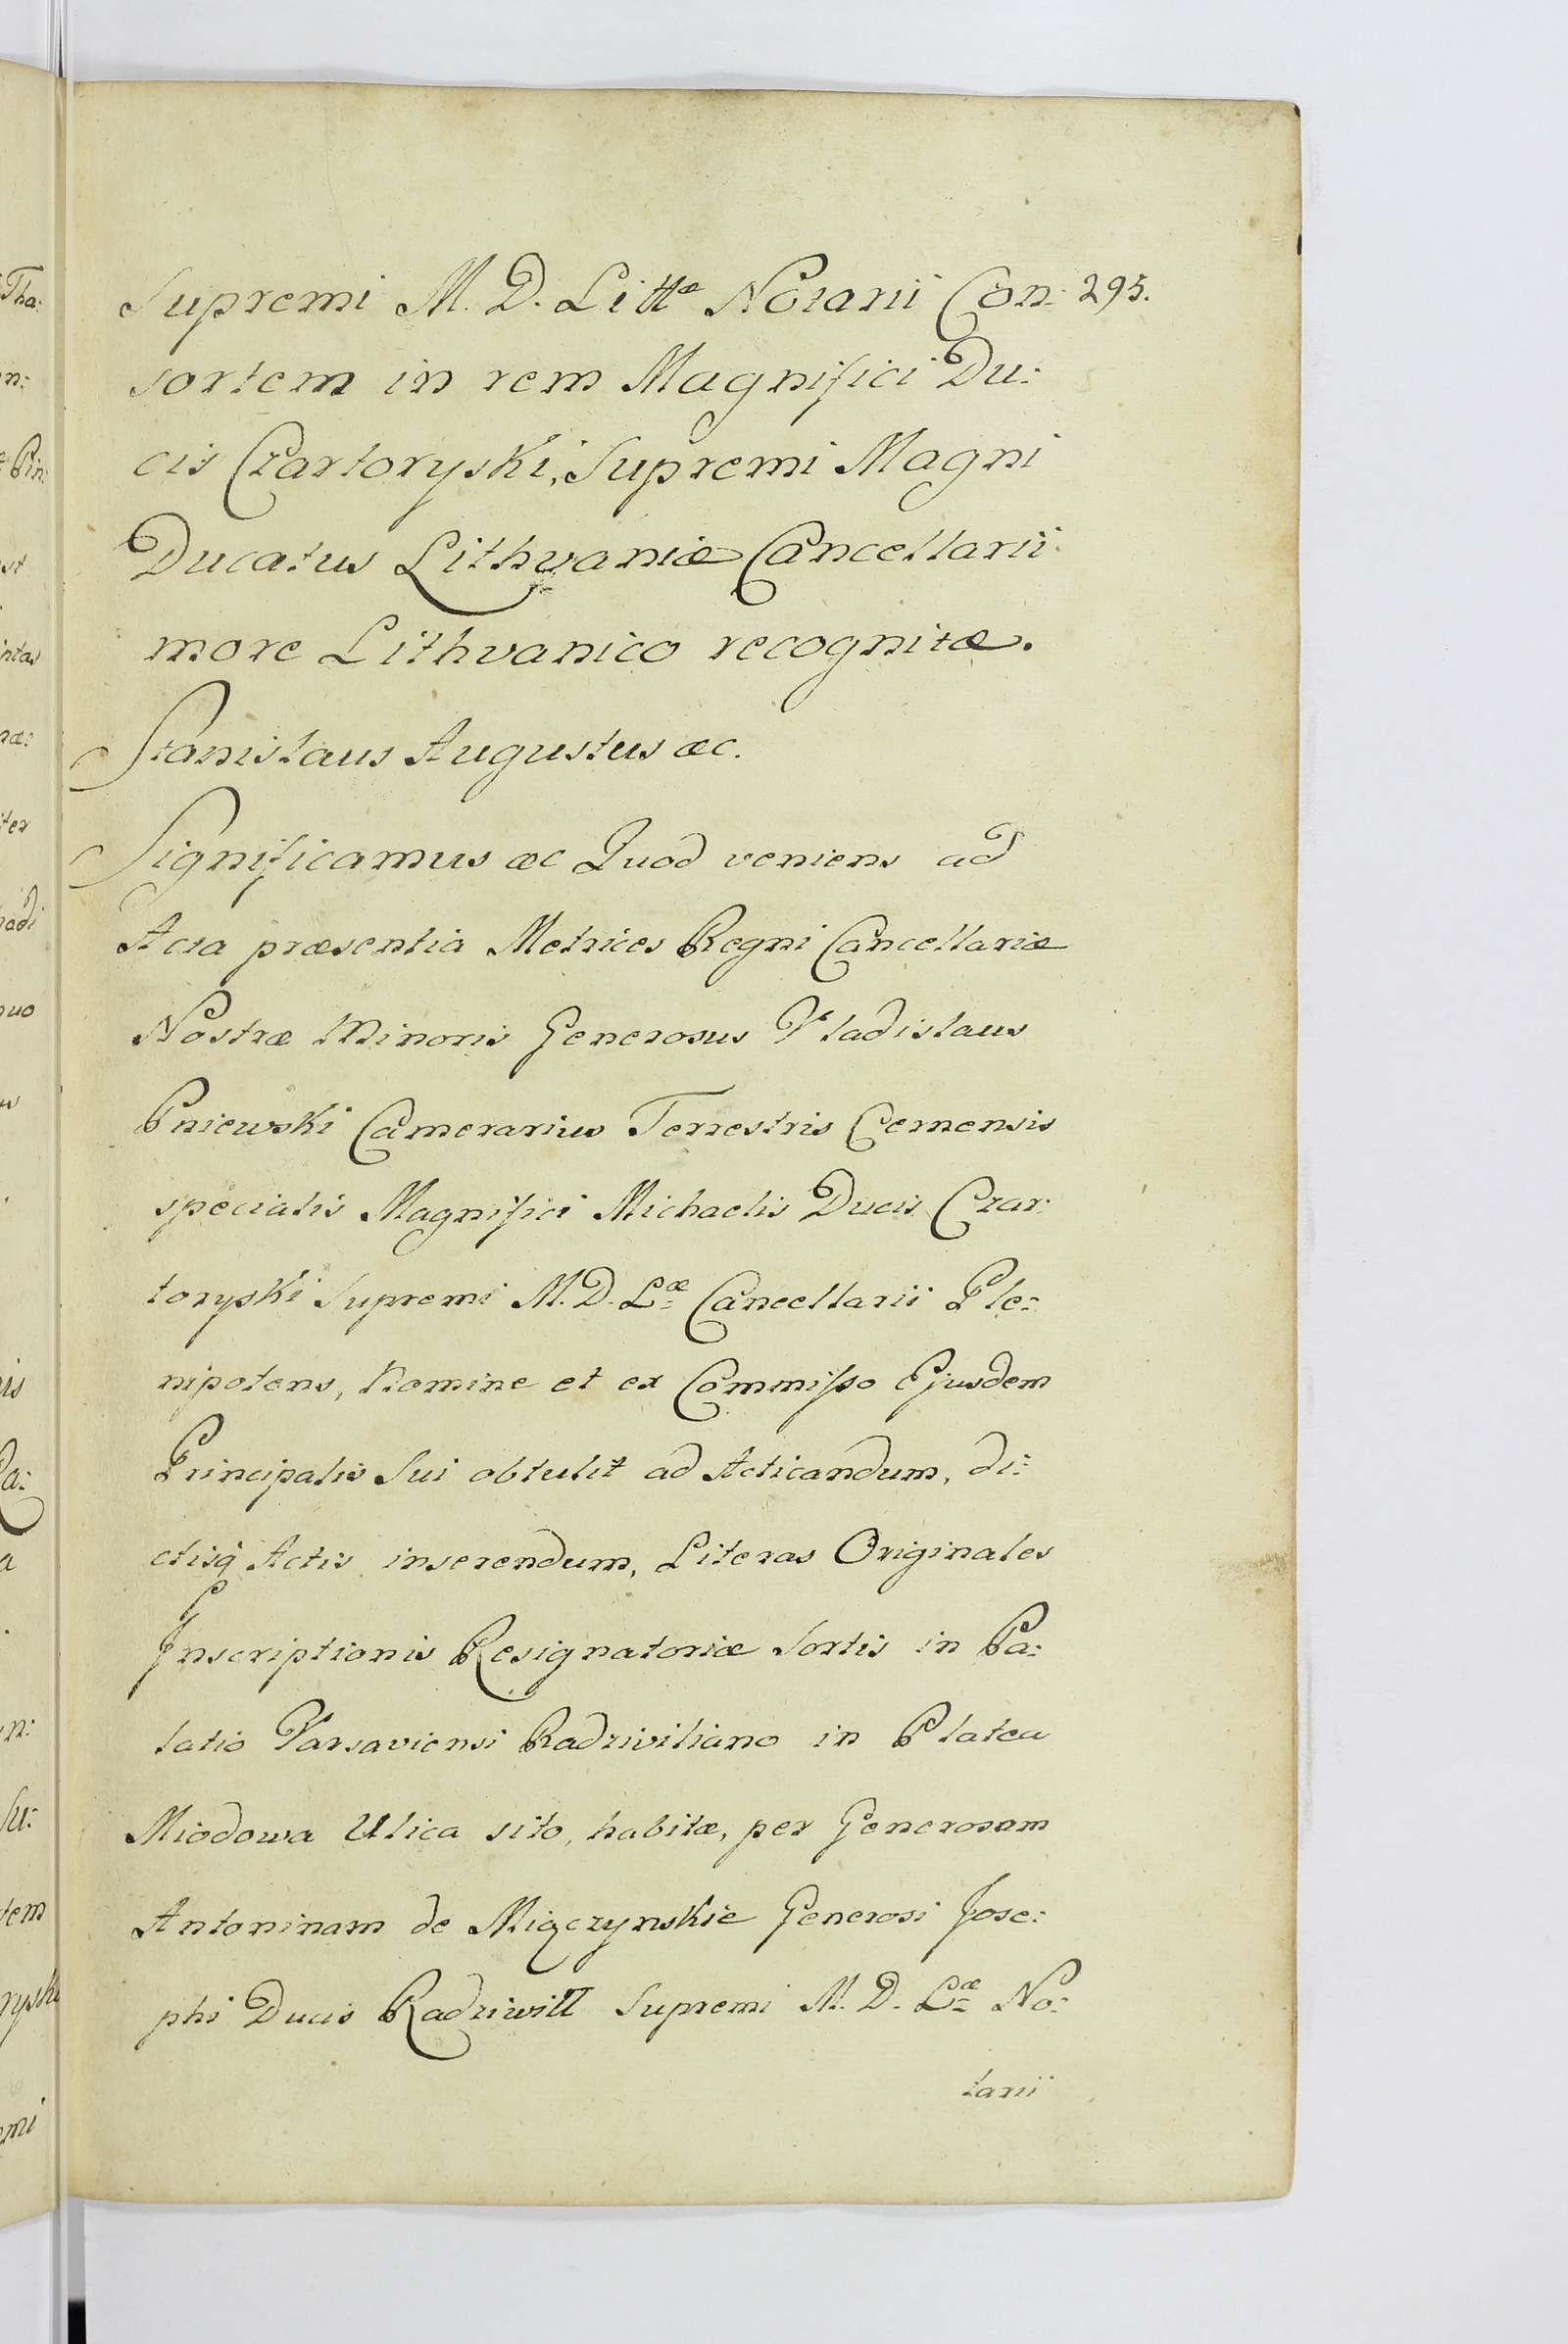 Supremi M. D. Littæ Notarii Con- 295.
sortem in rem Magnifici Du:
cis Czartoryski, Supremi Magni
Ducatus Lithvaniæ Cancellarii
more Lithvanico recognitæ.
Stanislaus Augustus æc.
Significamus æc Quod veniens ad
Acta præsentia Metrices Regni Cancellariæ
Nostræ Minoris Generosus Vladislaus
Pniewski Camerarius Terrestris Cernensis
specialis Magnifici Michaelis Ducis Czar:
toryski Supremi M. D. Læ Cancellarii Ple:
nipotens, Nomine et ex Commisso Ejusdem
Principalis Sui obtulit ad Acticandum, di:
ctisq Actis inserendum, Literas Originales
Inscriptionis Resignatoriæ Sortis in Pa:
latio Varsaviensi Radziviliano in Platea
Miodowa Ulica sito, habitæ, per Generosam
Antoninam de Miączynskie Generosi Jose:
phi Ducis Radziwiłł Supremi M. D. Læ No:
tarii